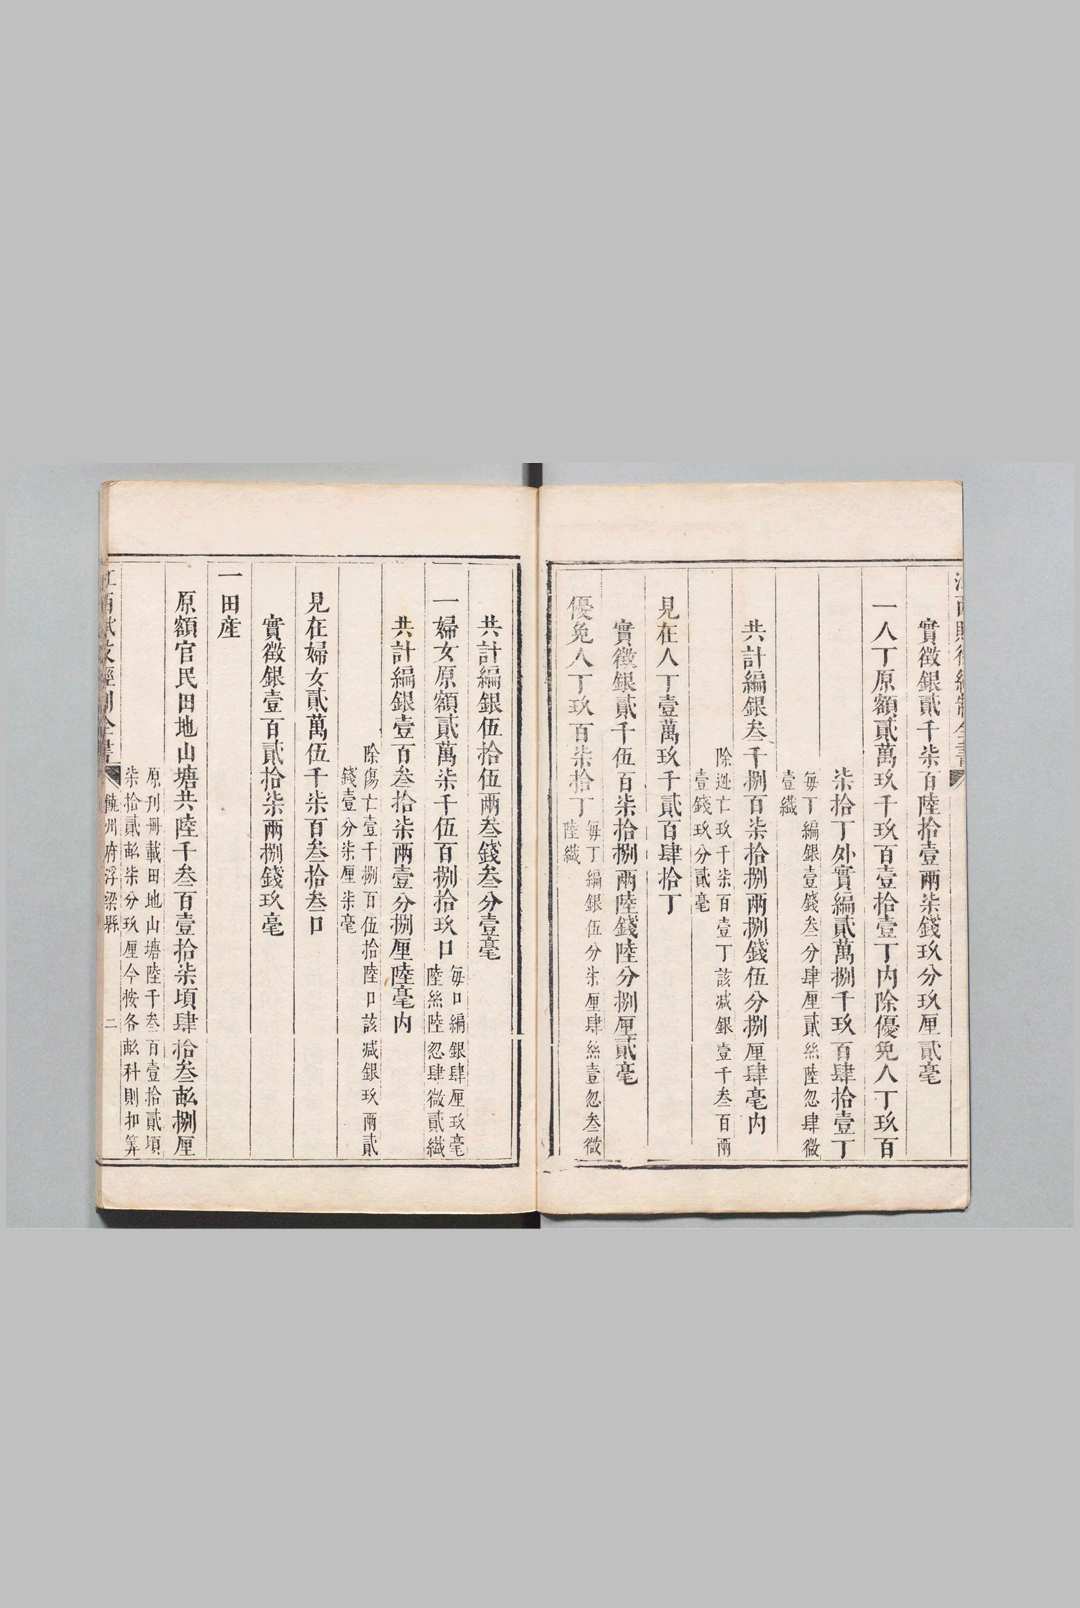 實徵銀貳千柒百陸拾壹兩柒錢玖分玖厘貳毫
一人丁原額貳萬玖千玖百壹拾壹丁內除優免人丁玖百
柒拾丁外實編貳萬捌千玖百肆拾壹丁
每丁編銀壹錢叁分肆厘貳絲陸忽肆微
壹纖
共計編銀叁千捌百柒拾捌兩捌錢伍分捌厘肆毫內
除逃亡玖千柒百壹丁該減銀壹千叁百兩
壹錢玖分貳毫
見在人丁壹萬玖千貳百肆拾丁
實徵銀貳千伍百柒拾捌兩陸錢陸分捌厘貳毫
優免人丁玖百柒拾丁
每丁編銀伍分柒厘肆絲壹忽叁微
陸纖
共計編銀伍拾伍兩叁錢叁分壹毫
一婦女原額貳萬柒千伍百捌拾玖口
每口編銀肆厘玖毫
陸絲陸忽肆微貳纖
共計編銀壹百叁拾柒兩壹分捌厘陸毫內
除傷亡壹千捌百伍拾陸口該減銀玖兩貳
錢壹分柒厘柒毫
見在婦女貳萬伍千柒百叁拾叁口
實徵銀壹百貳拾柒兩捌錢玖毫
一田產
原額官民田地山塘共陸千叁百壹拾柒頃肆拾叁畝捌厘
原刊冊載田地山塘陸千叁百壹拾貳頃
柒拾貳畝柒分玖厘今按各畝科則扣算
饒州府浮梁縣 二